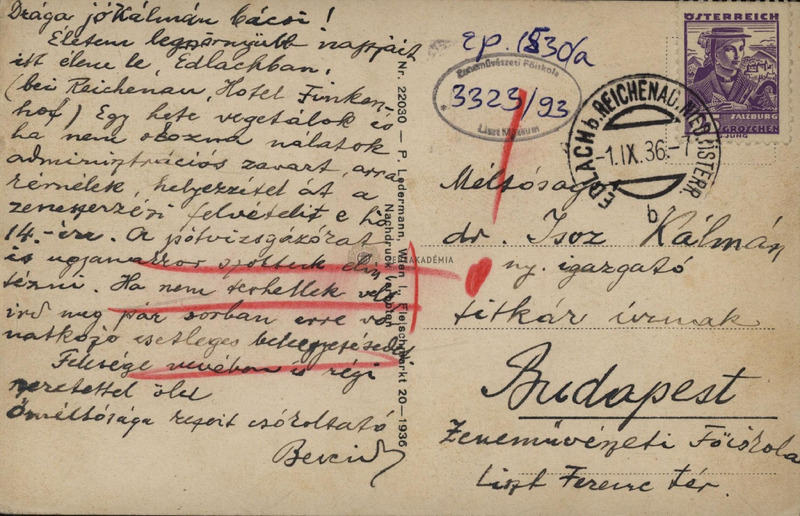 Drága jó Kálmán bácsi!
Életem legszörnyűbb napjait
itt élem le, Edlachban,
(bei Reichenau, Hotel Finken-
hof) Egy hete vegetálok és
ha nem okozna nálatok
adminisztrációs zavart, arra
kérnélek, helyezzétek át a
zeneszerzési felvételit e hó
14.-ére. A pótvizsgázókat
és ugyanakkor
Ha nem terhellek vele
írd meg pár sorban erre vo-
natkozó esetleges beleegyezésedet
Felesége nevében is régi
szeretettel ölel
Őméltósága kezeit csókoltató
Nr. 22030 — P. Ledermann, Wien I, Fleischmarkt 20—1936
Nachdruck verboten
ZENEAKADÉMIA
ep. 1530/a
Zeneművészeti Főiskola
3323/93
Liszt Múzeum
ÖSTERREICH
SALZBURG
GROSCHEN
EDLACH b. REICHENAU, NIED. ÖSTERR.
-1.IX.36.-7
b
Méltóságos
dr. Isoz Kálmán
ny. igazgató
titkár úrnak
Budapest
Zeneművészeti Főiskola
Liszt Ferenc tér.